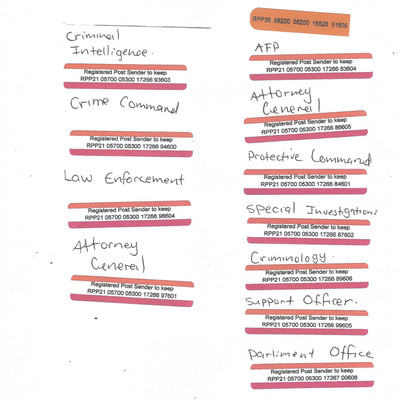 Criminal
Intelligence.
Registered Post Sender to keep
RPP21 05700 05300 17266 93603
Crime Command
Registered Post Sender to keep
RPP21 05700 05300 17266 94600
Law Enforcement
Registered Post Sender to keep
RPP21 05700 05300 17266 96604
Attorney
General
Registered Post Sender to keep
RPP21 05700 05300 17266 97601
RPP36 98200 05200 18528 51609
AFP
Registered Post Sender to keep
RPP21 05700 05300 17266 83604
Attorney
General
Registered Post Sender to keep
RPP21 05700 05300 17266 86605
Protective Command
Registered Post Sender to keep
RPP21 05700 05300 17266 84601
Special Investigations
Registered Post Sender to keep
RPP21 05700 05300 17266 87602
Criminology.
Registered Post Sender to keep
RPP21 05700 05300 17266 89606
Support Officer.
Registered Post Sender to keep
RPP21 05700 05300 17266 99605
Parliment Office
Registered Post Sender to keep
RPP21 05700 05300 17267 00608